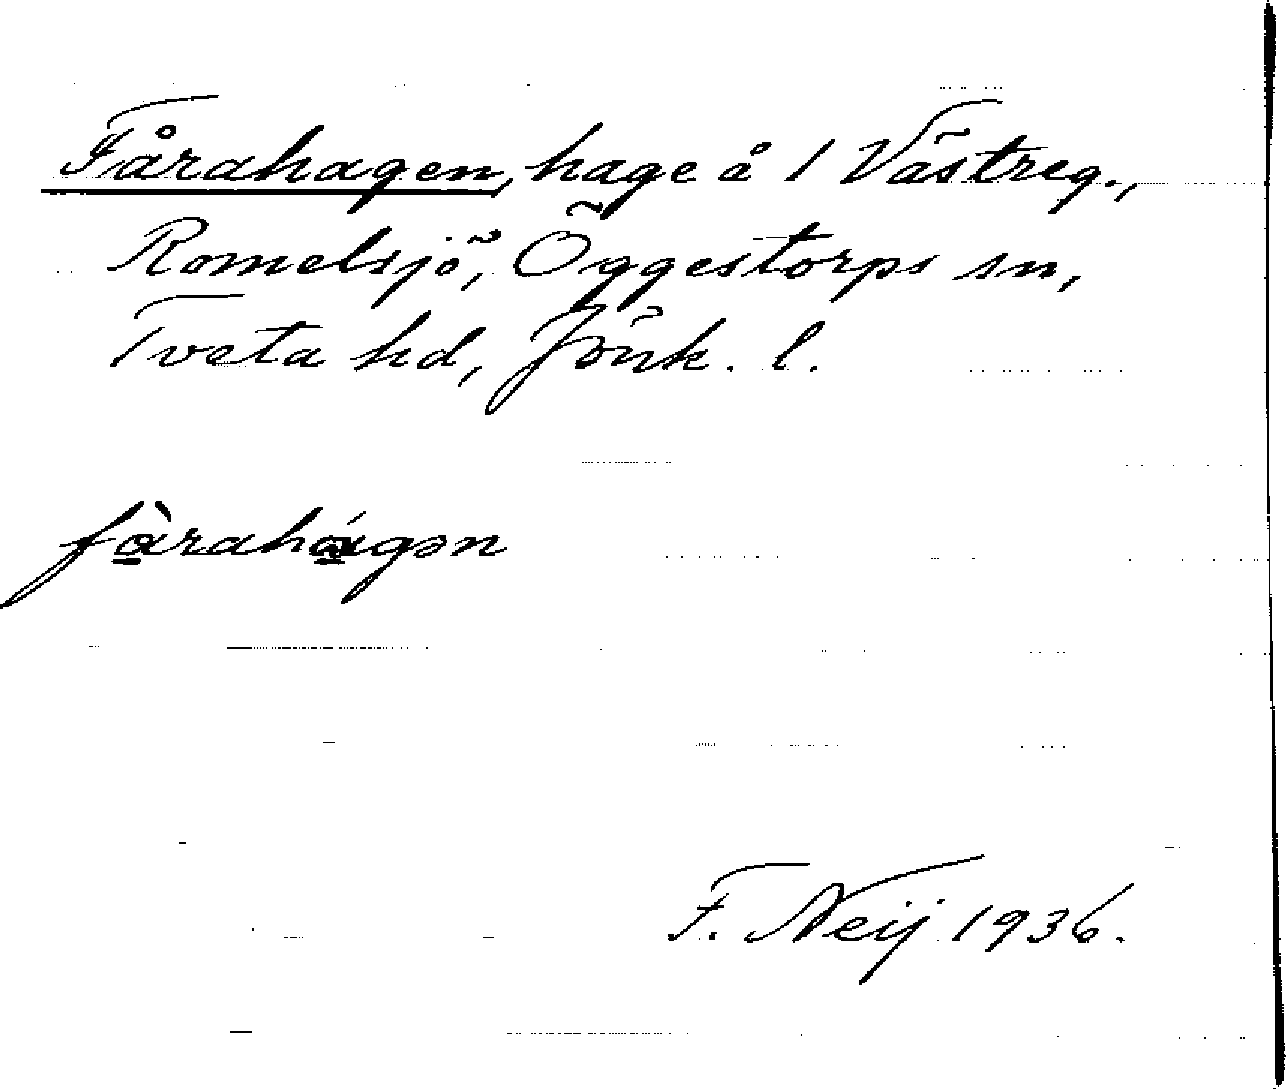 Fårahagen, hage å 1 Västreg.,
Romelsjö, Öggestorps sn,
Tveta hd, Jönk. l.
fàrahágən
F. Neij 1936.